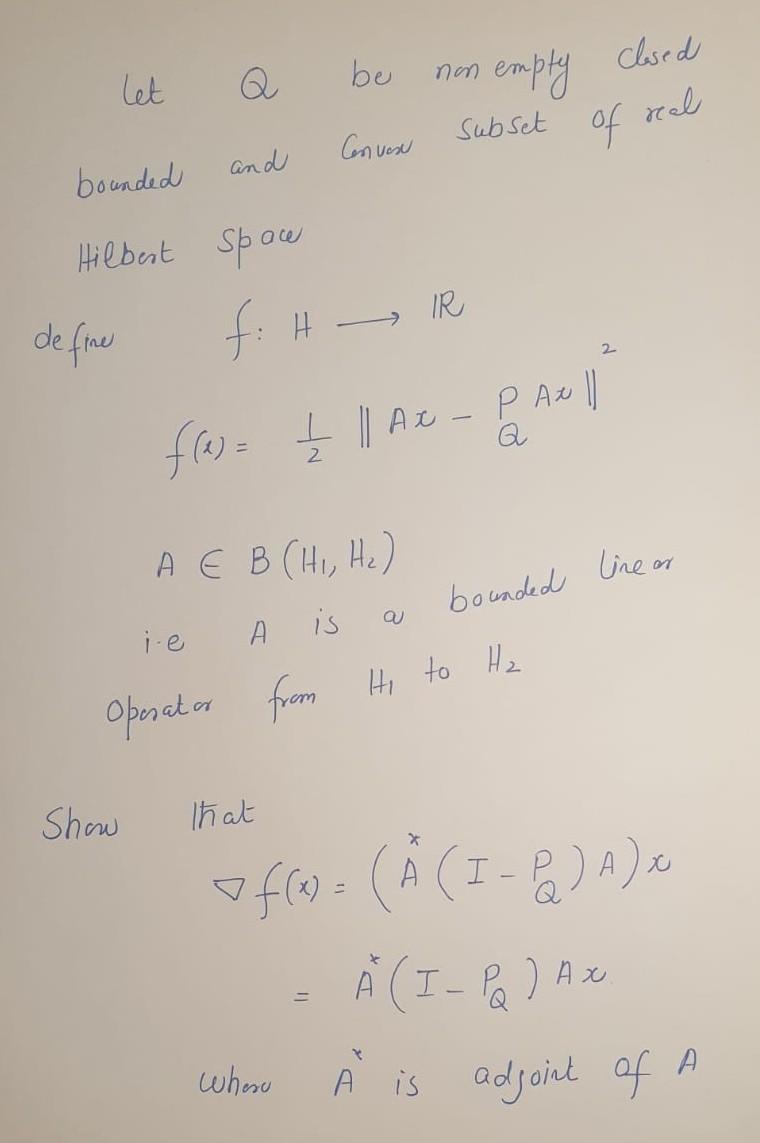 Let Q be non empty closed
bounded and Convex subset of real
Hilbert Space
define f: H ⟶ IR
f(x) = 1/2 || Ax - P_Q Ax ||²
A ∈ B (H₁, H₂)
i.e A is a bounded linear
Operator from H₁ to H₂
Show that
∇f(x) = (A* (I - P_Q) A) x
= A* (I - P_Q) Ax
where A* is adjoint of A